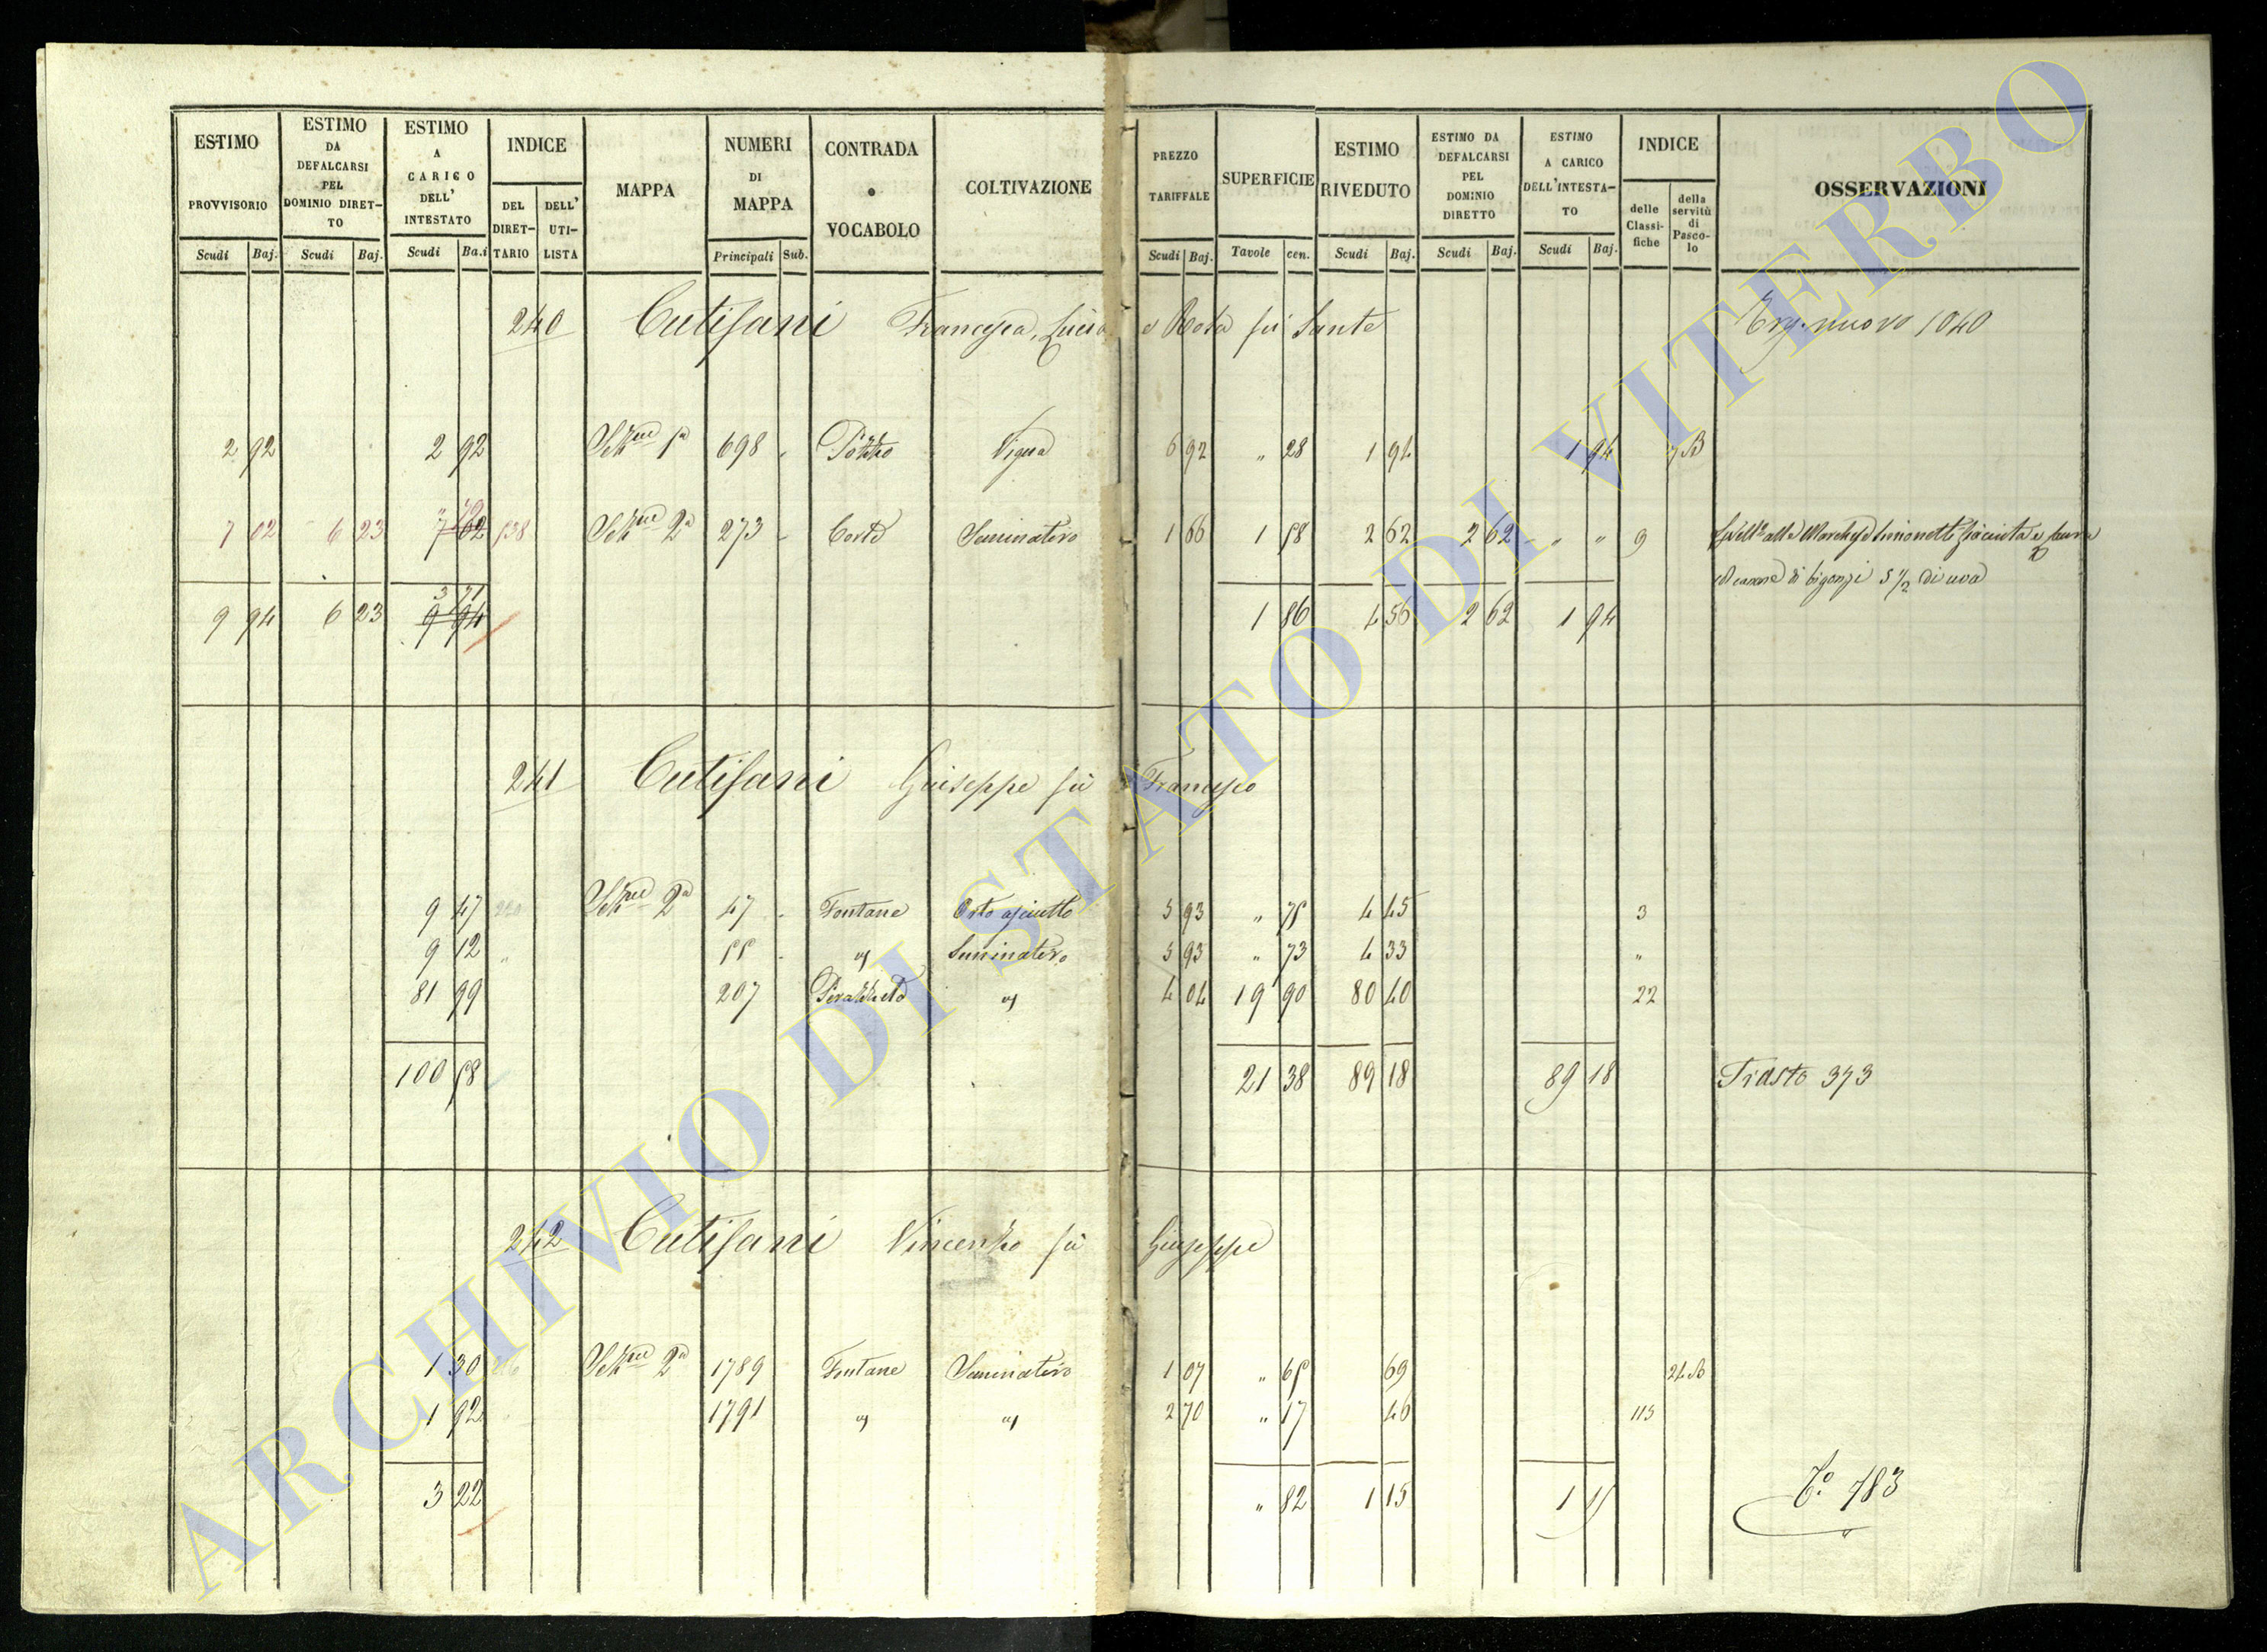 ESTIMO PROVVISORIO Scudi Baj.
ESTIMO DA DEFALCARSI PEL DOMINIO DIRET-TO Scudi Baj.
ESTIMO A CARICO DELL' INTESTATO Scudi Ba.i
INDICE DEL DIRET-TARIO DELL' UTI-LISTA
MAPPA
NUMERI DI MAPPA Principali Sub.
CONTRADA o VOCABOLO
COLTIVAZIONE
PREZZO TARIFFALE Scudi Baj.
SUPERFICIE Tavole cen.
ESTIMO RIVEDUTO Scudi Baj.
ESTIMO DA DEFALCARSI PEL DOMINIO DIRETTO Scudi Baj.
ESTIMO A CARICO DELL'INTESTA-TO Scudi Baj.
INDICE delle Classi-fiche della servitù di Pasco-lo
OSSERVAZIONI
240 Cutisani Francesca, Lucia e Rosa fù Sante nuovo 1040
2 92 2 92 1a 698 Pozzo Vigna 6 92 " 28 1 94 1 94 7 B
7 02 6 23 7 02 " 79 538 2a 273 Seminativo 1 66 1 58 2 62 2 62 " " 9 alla Marchesa Simonetti Giacinta e
di bigonzi 5 1/2 di uva
9 94 6 23 9 94 3 71 1 86 4 56 2 62 1 94
241 Cutisani Giuseppe fù Francesco
9 47 2a 47 Fontane Orto asciutto 5 93 " 75 4 45 3
9 12 " 55 " Seminativo 5 93 " 73 4 33 "
81 99 207 " 4 04 19 90 80 40 22
100 58 21 38 89 18 89 18 373
242 Cutisani Vincenzo fù Giuseppe
1 30 2a 1789 Fontane Seminativo 1 07 " 65 69 24 B
1 92 1791 " " 2 70 " 17 46 115
3 22 " 82 1 15 1 15 783
ARCHIVIO DI STATO DI VITERBO